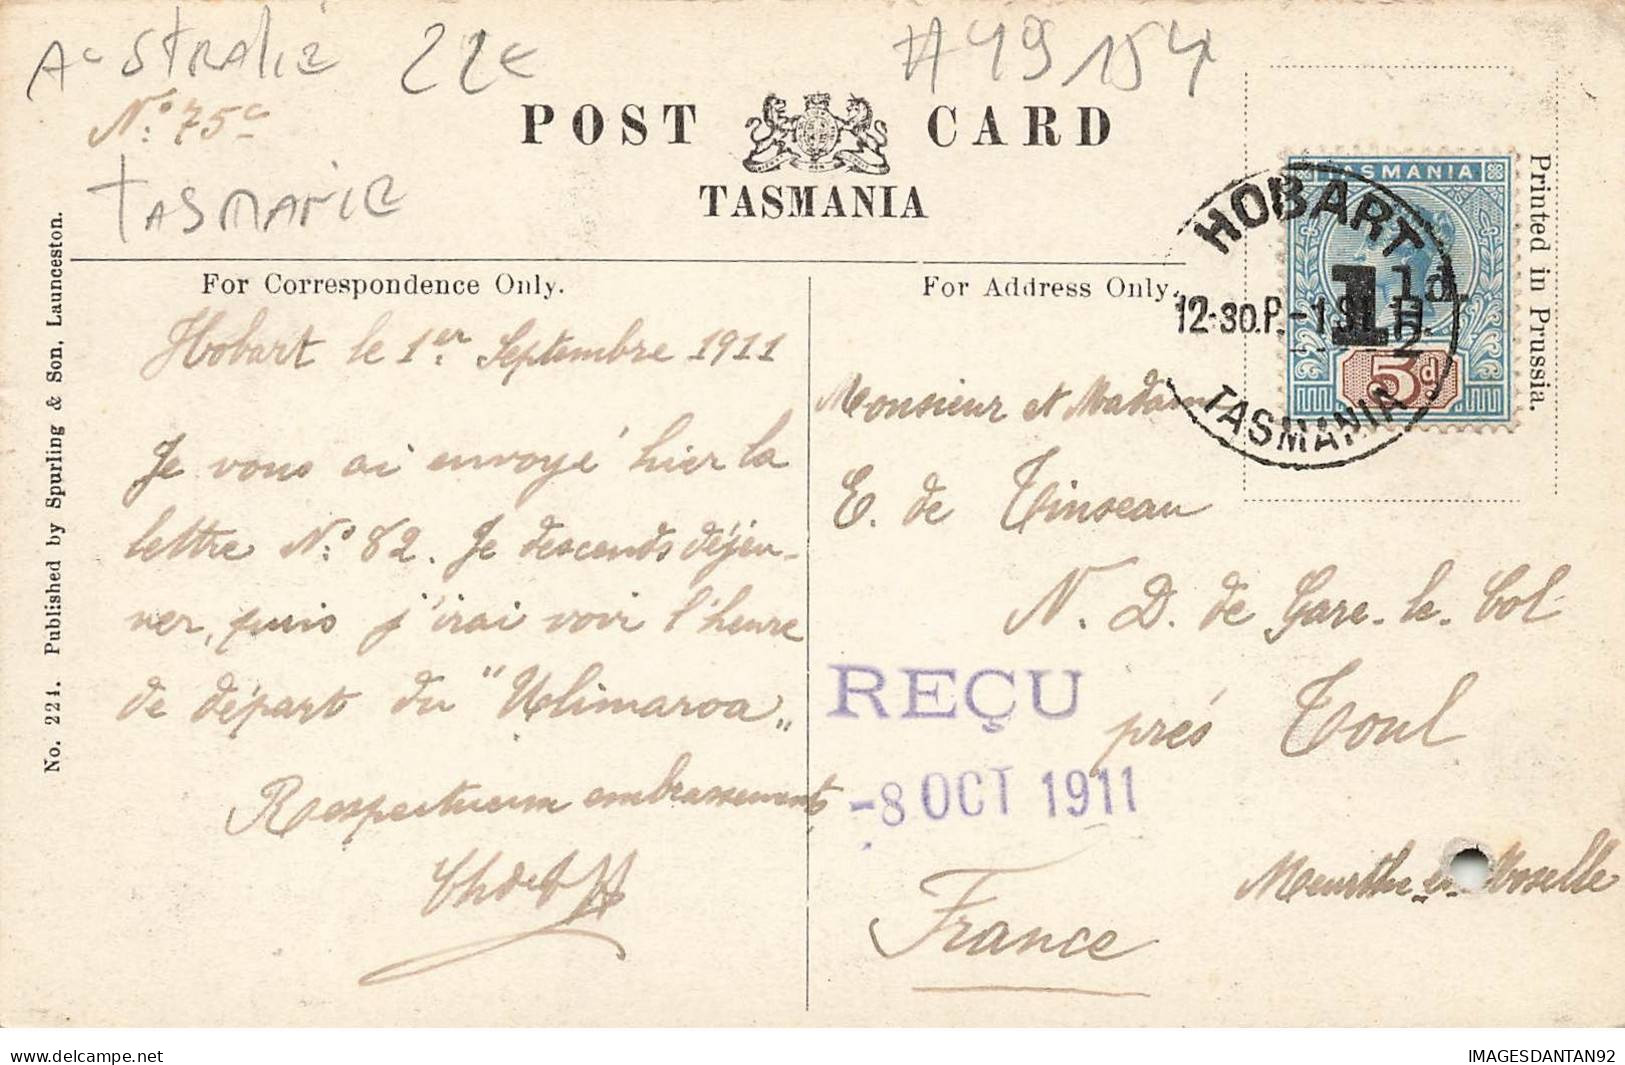 Australie 22€ #49154
N.° 75c
Tasmanie
POST CARD
TASMANIA
For Correspondence Only.
For Address Only.
Printed in Prussia.
No. 224. Published by Spurling & Son, Launceston.
TASMANIA
1½d.
5d
HOBART
12·30.P.-1.S
TASMANIA
Hobart le 1er Septembre 1911
Je vous ai envoyé hier la
lettre N.° 82. Je descends déjeu-
ner, puis j'irai voir l'heure
de départ du "Ulimaroa"
Respectueux embrassements
Monsieur et Madame
E. de Tinseau
N. D. de Gare-le-Col
près Toul
Meurthe-et-Moselle
France
REÇU
-8 OCT 1911
www.delcampe.net
IMAGESDANTAN92